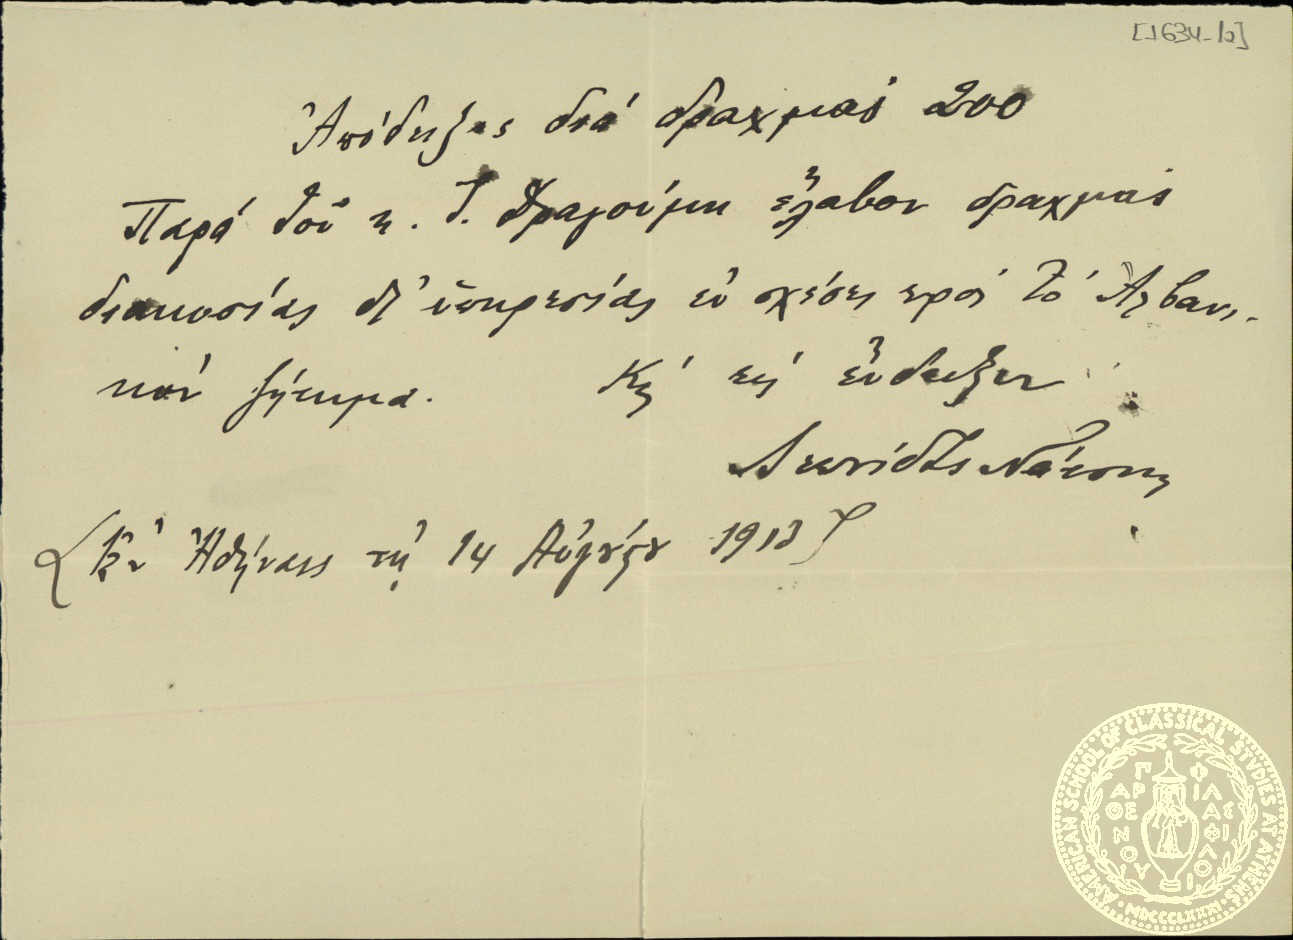 [1634-b]
Ἀπόδειξις διά δραχμάς 200
Παρά τοῦ κ. Ἰ. Δραγούμη ἔλαβον δραχμάς
διακοσίας δι' ὑπηρεσίας ἐν σχέσει πρός τό Ἀλβανι-
κόν ζήτημα. Κς' εἰς ἔνδειξιν
Λεωνίδας
Ἐν Ἀθήναις τῇ 14 Αὐγούστου 1913
AMERICAN SCHOOL OF CLASSICAL STUDIES AT ATHENS
ΠΑΡΘΕΝΟΥ ΦΙΛΑΣ ΦΙΛΟΙ
MDCCCLXXXI